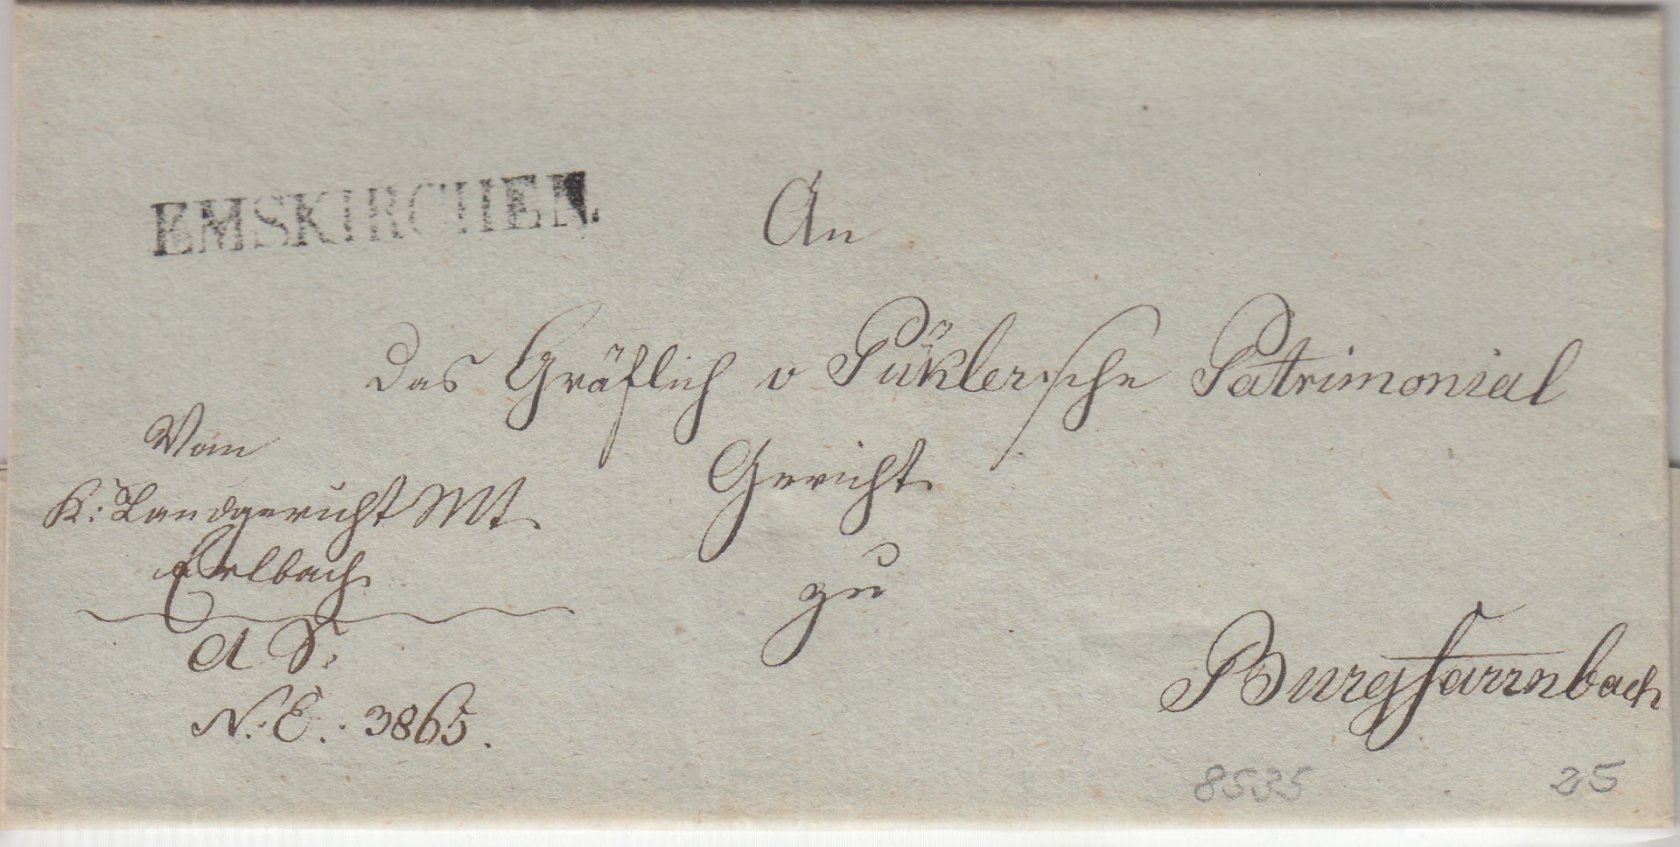 EMSKIRCHEN.
An
das Gräflich v Püklersche Patrimonial
Gericht
zu
Burgfarrnbach
Vom
K: Landgericht Mt.
Erlbach.
N. E. 3865.
8535
25